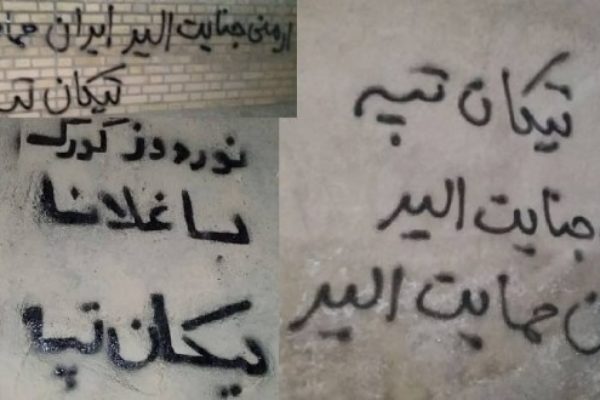 ارمنی جنایت الیر ایران حما
تیکان تپ
نوره دوز گورک
باغلانا
تیکان تپا
تیکان تپه
جنایت الیر
ن حمایت الیر